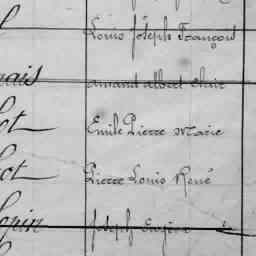 Louis Joseph François
nais amand albert
ot Emile Pierre Marie
ot Pierre Louis René
Joseph Eugène